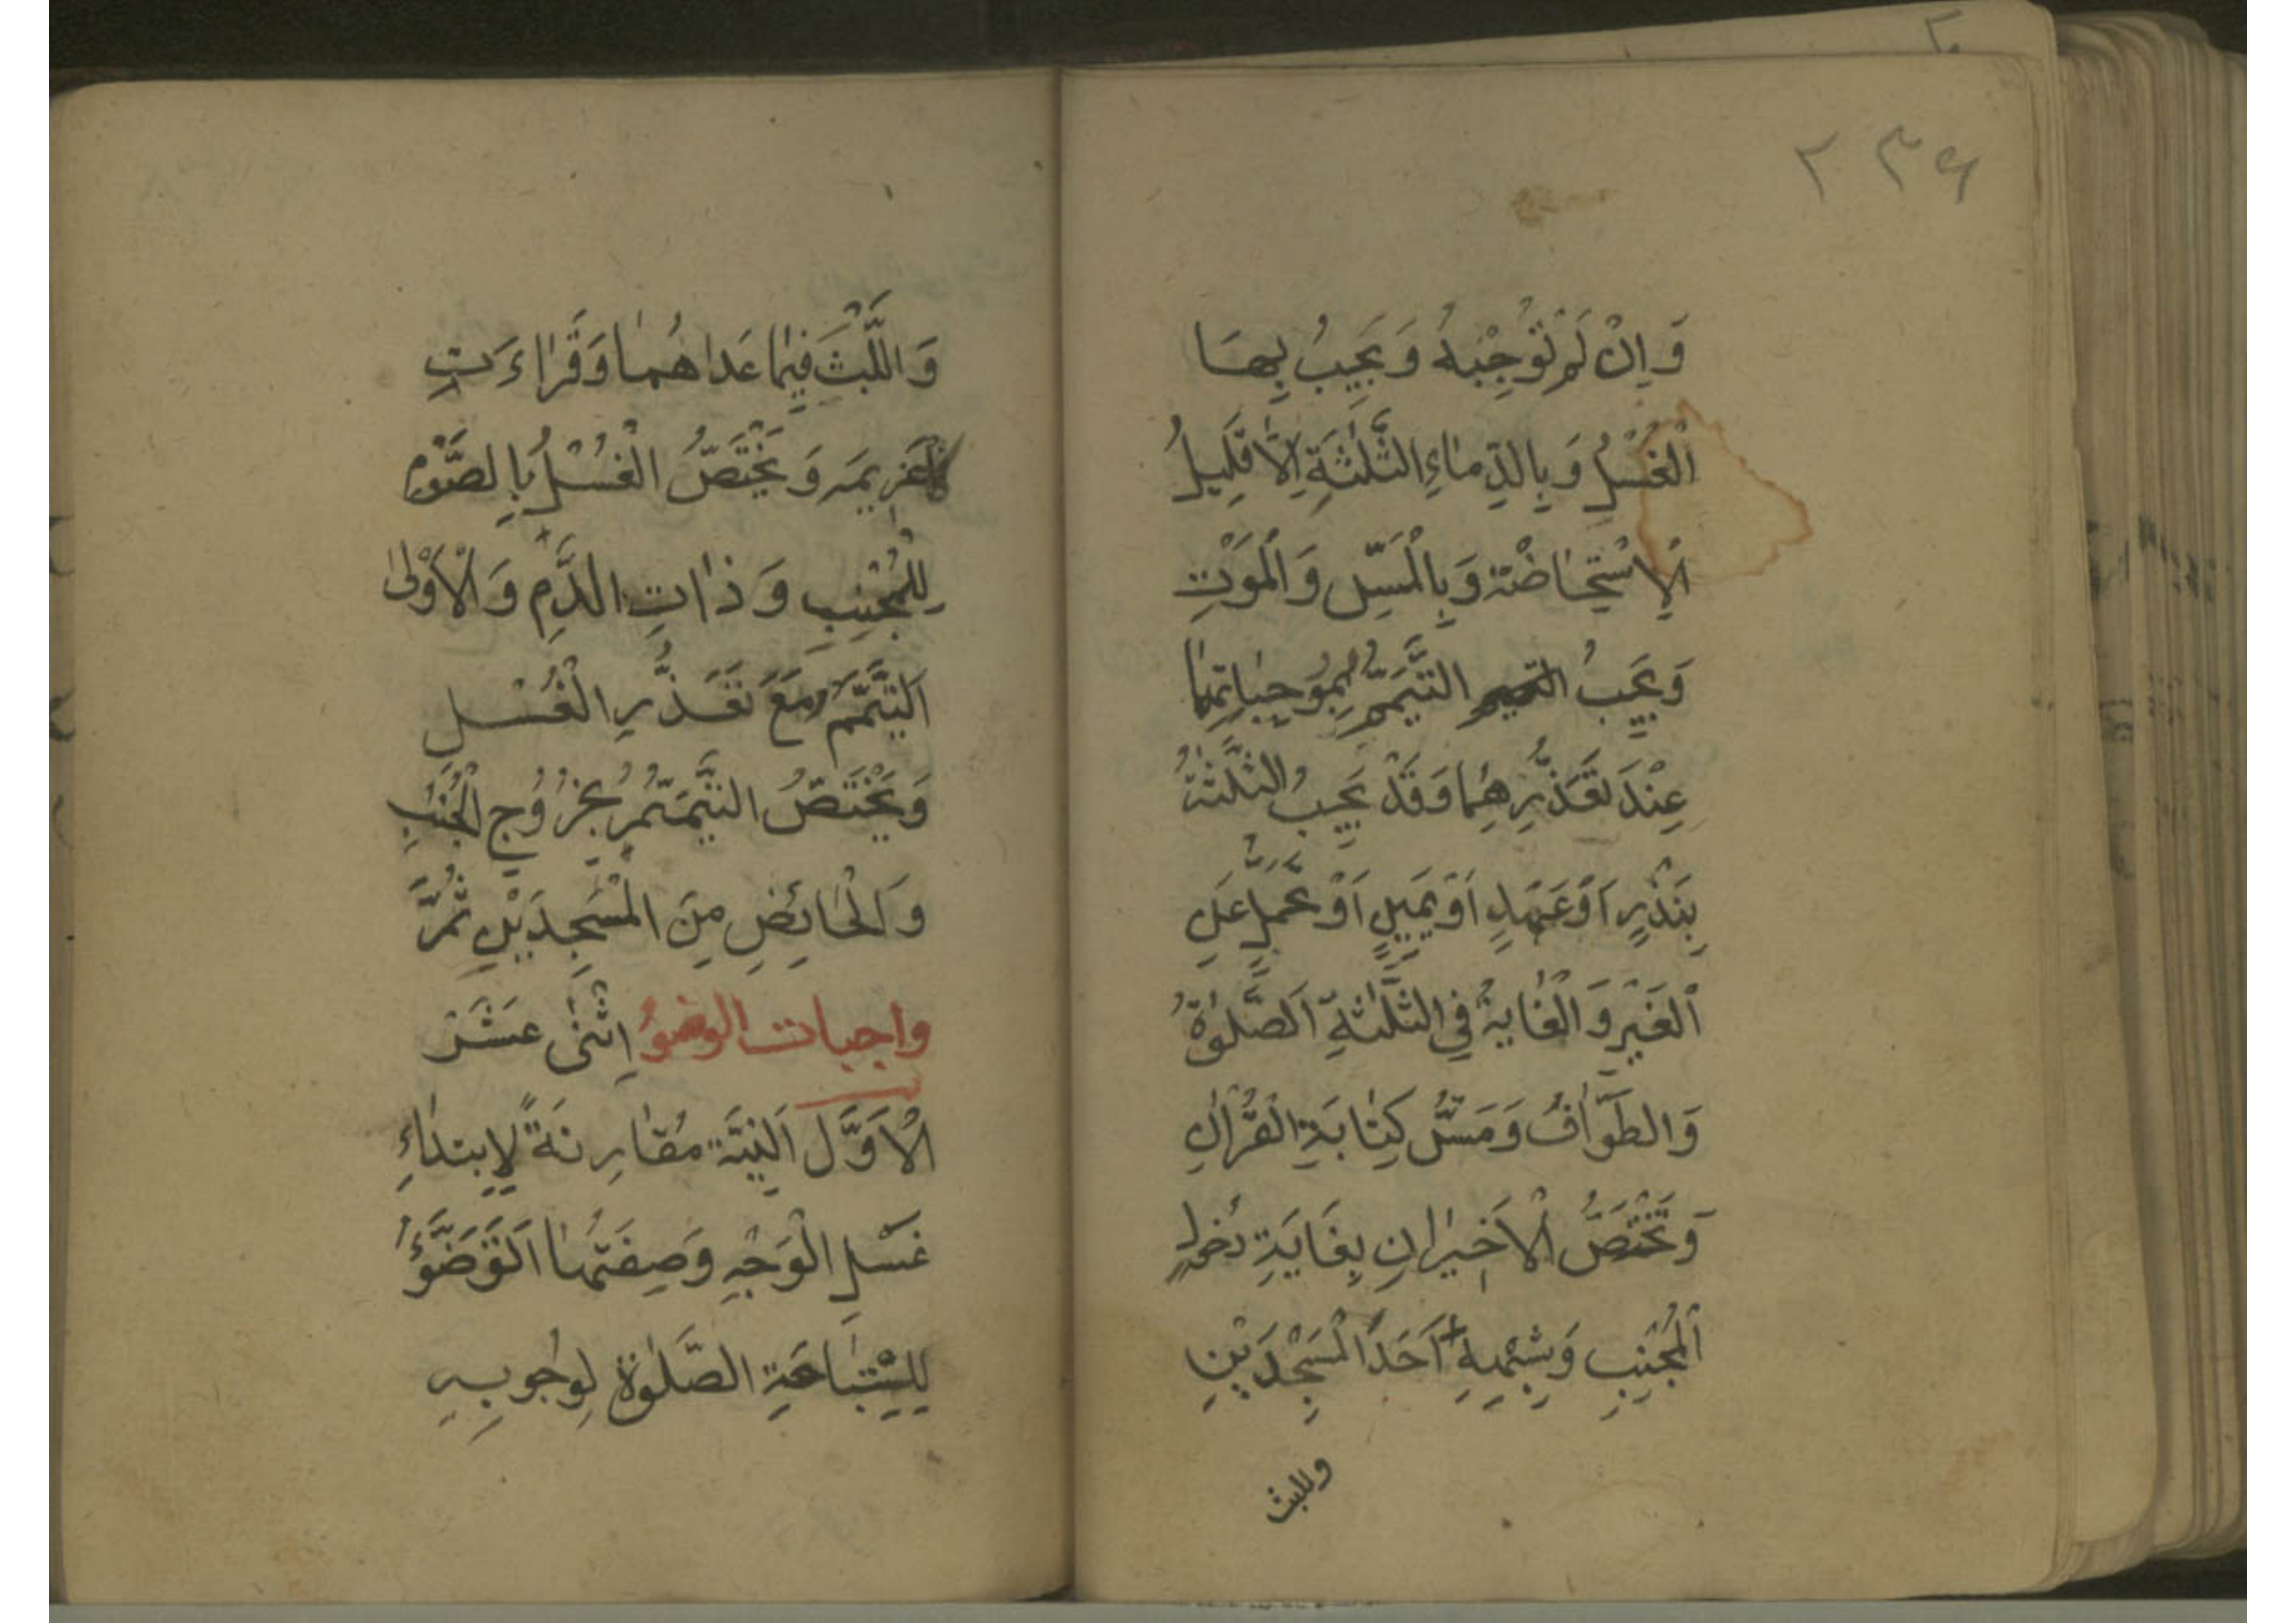 ۲۳۶
وَاِنْ لَمْ تُوْجِبْهُ وَيَجِبُ بِهَا
اَلْغُسْلُ وَبِالدِّمَاءِ الثَّلٰثَةِ اِلَّا قَلِيلُ
الْاِسْتِحَاضَةِ وَبِالْمَسِّ وَالْمَوْتِ
وَيَجِبُ التَّيَمُّمُ بِمُوجِبَاتِهِمَا
عِنْدَ تَعَذُّرِهِمَا وَقَدْ يَجِبُ الثَّلٰثَةُ
بِنَذْرٍ اَوْ عَهْدٍ اَوْ يَمِيْنٍ اَوْ تَحَمُّلٍ عَنِ
الْغَيْرِ وَالْغَايَةُ فِي الثَّلٰثَةِ اَلصَّلٰوةُ
وَالطَّوَافُ وَمَسُّ كِتَابَةِ الْقُرْاٰنِ
وَتَخْتَصُّ الْاَخِيْرَانِ بِغَايَةِ دُخُولِ
الْمُجْنِبِ وَشِبْهِهِ اَحَدَ الْمَسْجِدَيْنِ
وللبث
وَاللَّبْثَ فِيْمَا عَدَاهُمَا وَقَرَاءَتِ
الْعَزِيمَةِ وَيَخْتَصُّ الْغُسْلُ بِالصَّوْمِ
لِلْمُجْنِبِ وَذَاتِ الدَّمِ وَالْاَوْلٰى
اَلتَّيَمُّمُ مَعَ تَعَذُّرِ الْغُسْلِ
وَيَخْتَصُّ التَّيَمُّمُ بِخُرُوْجِ الْجُنُبِ
وَالْحَائِضِ مِنَ الْمَسْجِدَيْنِ ثُمَّ
واجبات الوضوُ اِثْنٰى عَشَرَ
الْاَوَّل اَلنِّيَّةُ مُقَارِنَةً لِاِبْتِدَاءِ
غَسْلِ الْوَجْهِ وَصِفَتُهَا اَتَوَضَّؤُ
لِاسْتِبَاحَةِ الصَّلٰوةِ لِوُجُوبِهِ